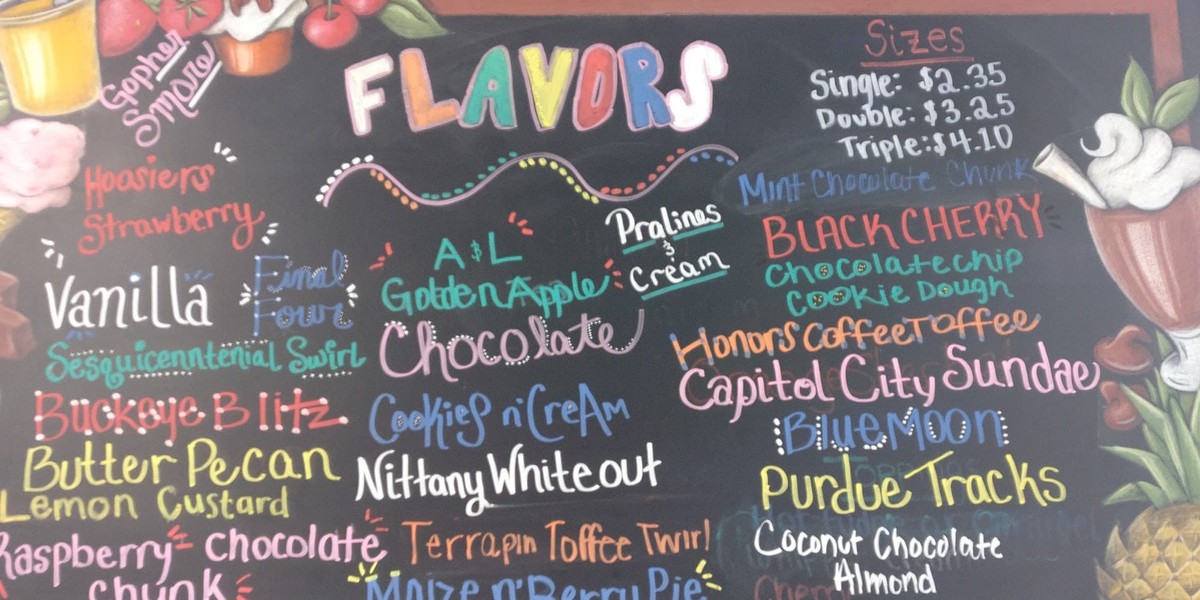 FLAVORS
Gopher
S'more
Hoosiers
Strawberry
Vanilla
Final
Four
Sesquicenntenial Swirl
Buckeye Blitz
Butter Pecan
Lemon Custard
Raspberry- Chocolate
chunk
A&L
Golden Apple
Pralines
&
Cream
Chocolate
Cookies n' Cream
Nittany Whiteout
Terrapin Toffee Twirl
Maize n' Berry Pie
Sizes
Single: $2.35
Double: $3.25
Triple: $4.10
Mint Chocolate Chunk
BLACK CHERRY
Chocolate chip
Cookie Dough
Honors Coffee Toffee
Capitol City Sundae
Blue Moon
Purdue Tracks
Coconut Chocolate
Almond